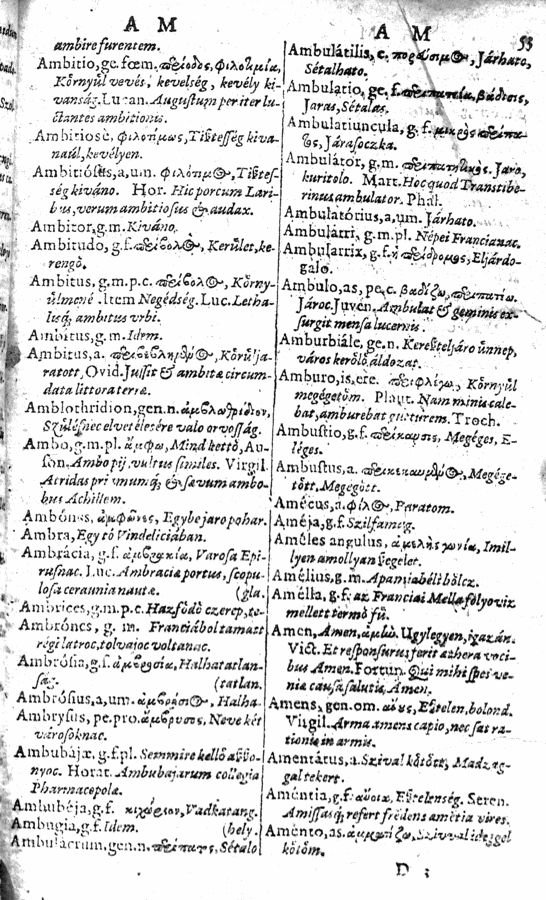 A M
ambire furentem.
Ambitio, ge. fœm. φιλοτιμία,
Kőrnyűl vevés, kevelség, kevély ki-
vanság. Lucan. Augustum per iter lu-
ctantes ambitionis.
Ambitiosè, φιλοτίμως, Tißtesség kiva-
naúl, kevélyen.
Ambitiósus, a, um. Tißtes-
ség kiváno. Hor. Hic porcum Lari-
bus, verum ambitiosus & audax.
Ambitor, g. m. Kiváno.
Ambitudo, g. f. Kerűlet, ke-
rengő.
Ambitus, g. m. p. c. Kőrny-
űlmené. Item Negédség. Luc. Letha-
lisq́; ambitus urbi.
Ambitus, g. m. Idem.
Ambitus, a. Kőrűlja-
ratott, Ovid. Jussit & ambitæ circum-
data littora terræ.
Amblothridion, gen. n. ἀμβλωθρίδιον,
Szűlésnec elvetelesére valo orvosság.
Ambo, g. m. pl. ἄμφω, Mind kettő, Au-
son. Ambo pij, vultus similes. Virgil.
Atridas priamumq́; & sævum ambo-
bus Achillem.
Ambónes, ἄμβωνες, Egybe jaro pohar.
Ambra, Egy tó Vindeliciában.
Ambrácia, g. f. ἀμβρακία, Varosa Epi-
rusnac. Luc. Ambraciæ portus, scopu-
losa ceraunia nautæ. (gla.
Ambrices, g. m. p. c. Hazfődő czerep, te-
Ambrónes, g. m. Franciából tamatt
régi latroc, tolvajoc voltanac.
Ambrósia, g. f. ἀμβροσία, Halhatatlan-
ság. (tatlan.
Ambrósius, a, um. Halha-
Ambrysus, pe. pro. ἄμβρυσος, Neve két
városoknac.
Ambubájæ, g. f. pl. Semmire kellő aßßo-
nyoc. Horat. Ambubajarum collegia
Pharmacopolæ.
Ambubéja, g. f. κιχώριον, Vadkatang.
Ambugia, g. f. Idem. (hely.
Ambulacrum, gen. n. Sétalo
A M 53
Ambulátilis, c. Járhato,
Sétalhato.
Ambulatio, ge. f. βάδισις,
Jaras, Sétalas.
Ambulatiuncula, g. f.
Járasoczka.
Ambulátor, g. m. Jaro,
kuritolo. Mart. Hoc quod Transtibe-
rinus ambulator. Phal.
Ambulatórius, a, um. Járhato.
Ambulátri, g. m. pl. Népei Francianac.
Ambulatrix, g. f. Eljárdo-
galo.
Ambulo, as, pe. c. βαδίζω,
Jároc. Juven. Ambulat & geminis ex-
surgit mensa lucernis.
Amburbiále, ge. n. Keresteljáro ünnep,
város kerőlő, áldozat.
Amburo, is, ere. Kőrnyűl
megégetőm. Plaut. Nam nimis cale-
bat, amburebat gutturem. Troch.
Ambustio, g. f. Megéges, E-
léges.
Ambustus, a. Megége-
tőtt, Megégőtt.
Amécus, a. Paratom.
Améja, g. f. Szilfameg.
Améles angulus, ἀμελὴς γωνία, Imil-
lyen amollyan ßegelet.
Amélius, g. m. Apamiabéli bőlcz.
Amélla, g. f. az Franciai Mella folyoviz
mellett termő fű.
Amen, Amen, Ugy legyen, igazán.
Vict. Et responsuris ferit æthera voci-
bus Amen. Fortun. Qui mihi spes ve-
niæ causa salutis, Amen.
Amens, gen. om. Eßtelen, bolond.
Virgil. Arma amens capio, nec sat ra-
tionis in armis.
Amentátus, a. Szival kőtőtt, Madzag-
gal tekert.
Améntia, g. f. Eßtelenség. Seren.
Amissasq́; refert frédens amētia vires.
Aménto, as. Szivval idegel
kőtőm.
D 3